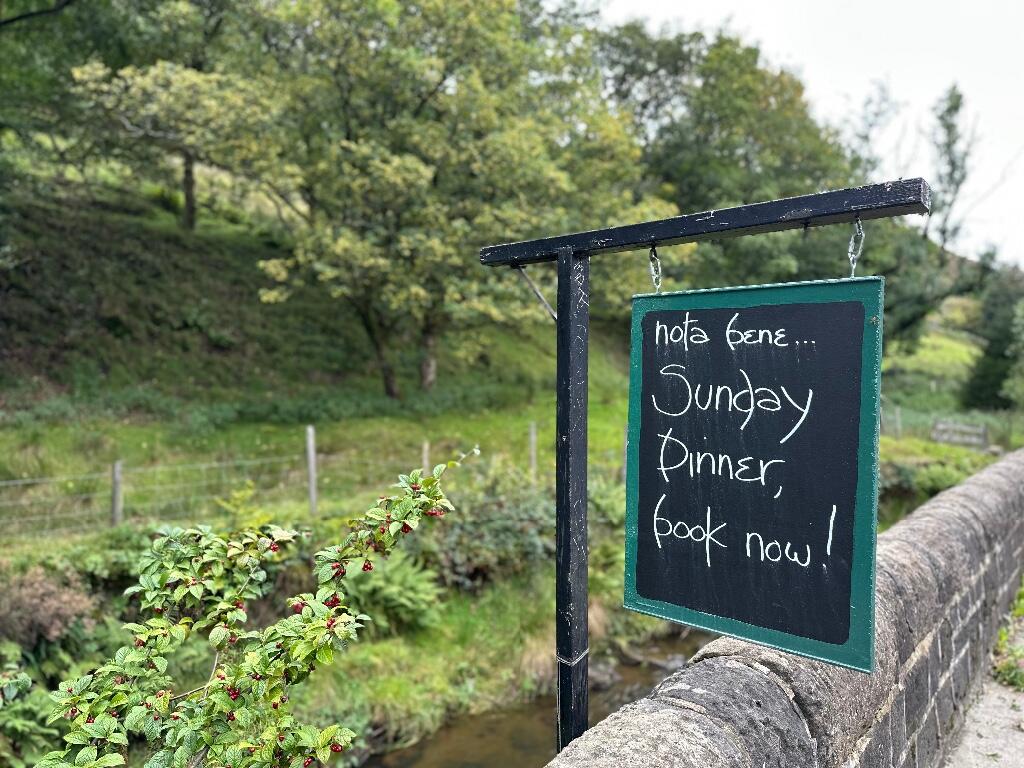 nota bene...
Sunday
Dinner,
book now!